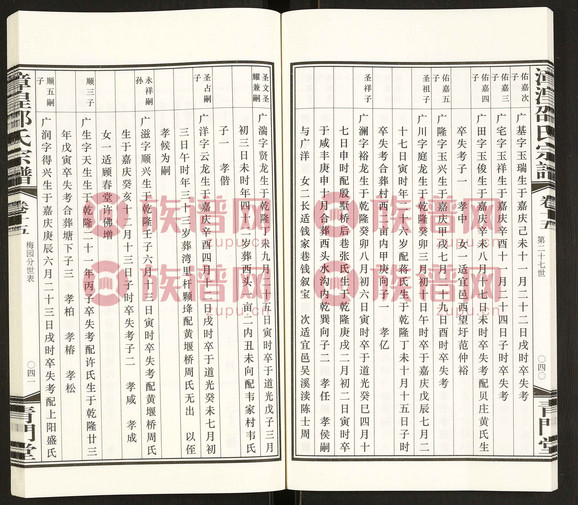 漳湟邵氏宗譜
卷五
第二十七世
〇四〇
青門堂
佑嘉次子
广基字玉瑞生于嘉庆己未十一月二十二日戌时卒失考
佑嘉三子
广宅字玉祥生于嘉庆辛酉十一月二十四日子时卒失考
佑嘉四子
广田字玉俊生于嘉庆辛未八月十七日未时卒失考配贝庄黄氏生
卒失考子一 孝中 女一适宜邑西望圩范仲裕
佑嘉五子
广隆字玉兴生于嘉庆甲戌七月二十九日酉时卒失考
圣祖子
广川字庭龙生于嘉庆癸亥三月初十日午时卒于嘉庆戊辰七月二
十七日寅时年三十六岁配蒋氏生于乾隆丁未十月十五日子时
卒失考合葬村西二亩内甲庚向子一 孝亿
圣祥子
广澜字裕龙生于嘉庆癸卯八月初六日寅时卒于道光癸巳四月十
七日申时配殷墅桥后巷张氏生于乾隆庚戌二月初二日寅时卒
于咸丰庚申十月合葬西头水沟内乾巽向子二 孝任 孝侯嗣
与广洋 女二长适钱家巷钱叙宝 次适宜邑吴溪渎陈士周
圣文圣耀兼嗣
广湍字贤龙生于乾隆丁未九月二十五日寅时卒于道光戊子三月
初三日未时年四十二岁葬西头一亩二内丑未向配韦家村韦氏
子一 孝偕
圣占嗣子
广洋字云龙生于嘉庆辛酉四月十一日戌时卒于道光癸未七月初
三日午时年二十三岁葬湾里秆颗烽配黄堰桥周氏无出 以侄
孝候为嗣
永祥嗣孙
广滋字顺兴生于乾隆壬子六月十三日寅时卒失考配黄堰桥周氏
生于嘉庆癸亥十二月十三日子时卒失考子二 孝咸 孝成
女一适顾春堂许佛增
顺三子
广生字天生生于乾隆二十一年丙子卒失考配许氏生于乾隆廿三
年戊寅卒失考合葬塘下子三 孝柏 孝椿 孝松
顺五嗣子
广润字得兴生于嘉庆庚辰六月二十三日戌时卒失考配上阳盛氏
漳湟邵氏宗譜
卷五
梅园分世表
〇四一
青門堂